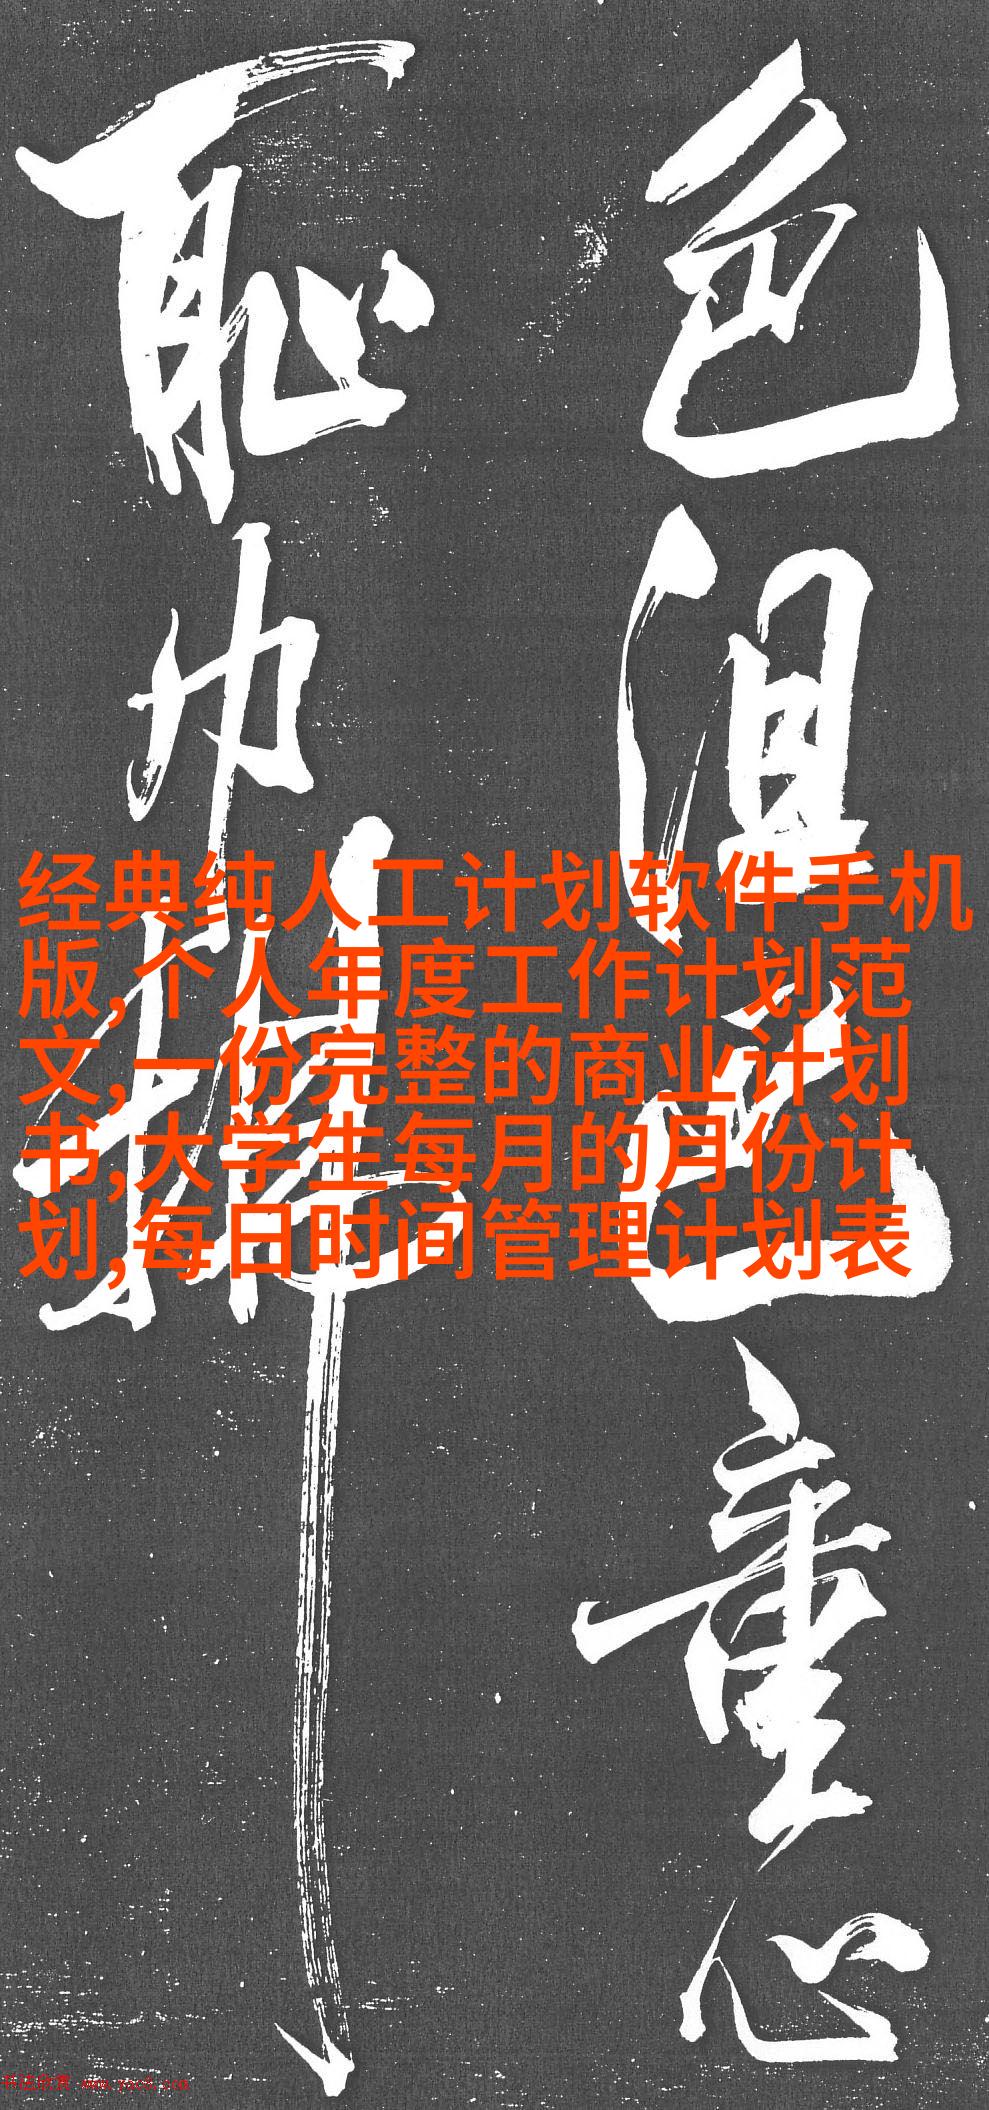 色沮𨒪童心
耻巾帼
经典纯人工计划软件手机
版,个人年度工作计划范
文,一份完整的商业计划
书,大学生每月的月份计
划,每日时间管理计划表
书法欣赏 www.yac8.com